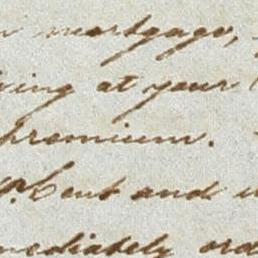 mortgage,
at your
premium.
P. Cent and
immediately